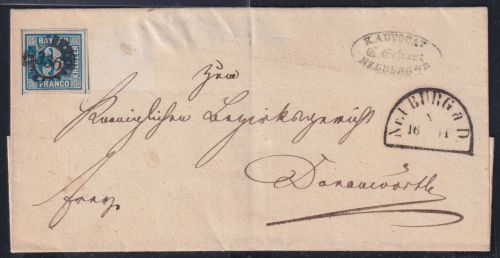 BAYERN
KREUZER
FRANCO
K. ADVOCAT
NEUBURG a/D.
Zum
Königlichen Bezirksgericht
Donauwörth
frey
NEUBURG a D.
16 11